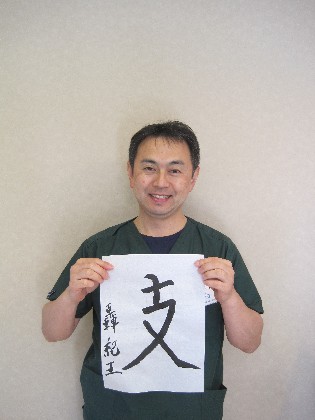 支
轟紀王